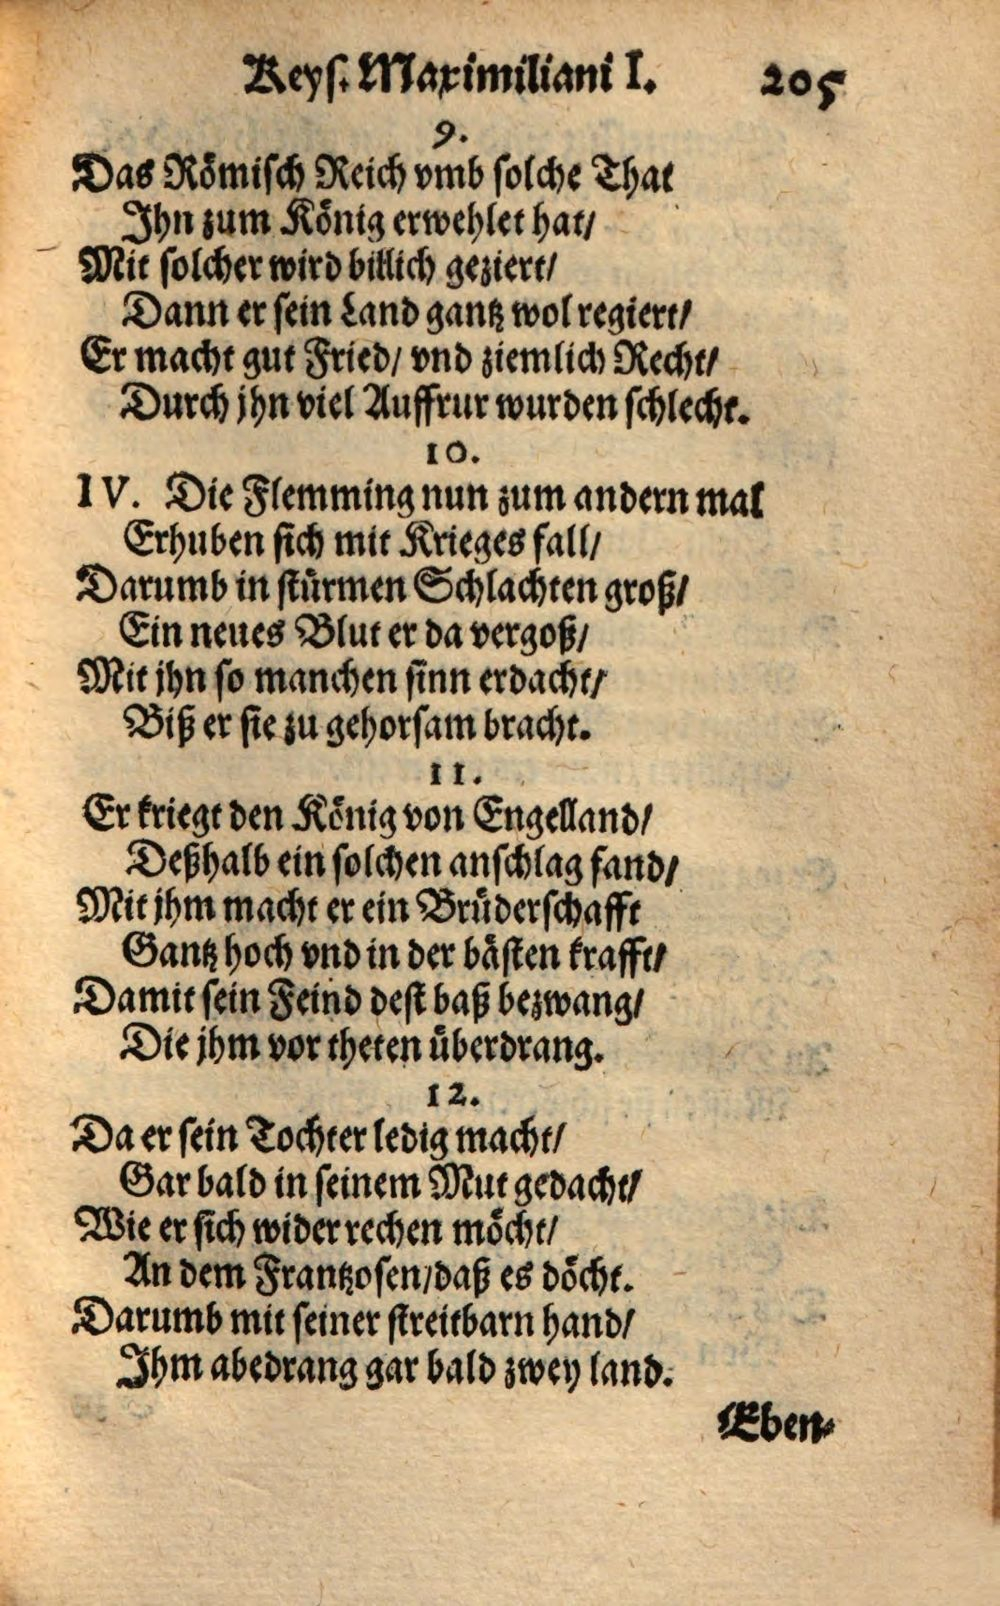 Keys. Maximiliani I. 205
9.
Das Römisch Reich vmb solche That
Ihn zum König erwehlet hat/
Mit solcher wird billich geziert/
Dann er sein Land gantz wol regiert/
Er macht gut Fried/ vnd ziemlich Recht/
Durch jhn viel Auffrur wurden schlecht.
10.
IV. Die Flemming nun zum andern mal
Erhuben sich mit Krieges fall/
Darumb in stürmen Schlachten groß/
Ein neues Blut er da vergoß/
Mit jhn so manchen sinn erdacht/
Biß er sie zu gehorsam bracht.
11.
Er kriegt den König von Engelland/
Deßhalb ein solchen anschlag fand/
Mit jhm macht er ein Brüderschafft
Gantz hoch vnd in der bästen krafft/
Damit sein Feind dest baß bezwang/
Die jhm vor theten überdrang.
12.
Da er sein Tochter ledig macht/
Gar bald in seinem Mut gedacht/
Wie er sich wider rechen möcht/
An dem Frantzosen/daß es döcht.
Darumb mit seiner streitbarn hand/
Ihm abedrang gar bald zwey land.
Eben-